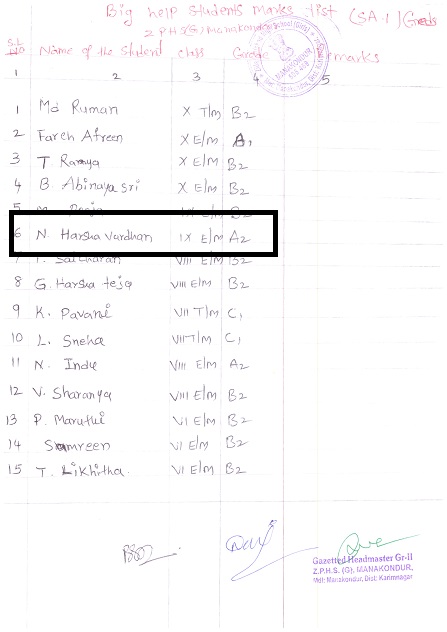 Big help students Marks list (SA-1) Grads
Z P H S (G) Manakondur
S.L No Name of the Student class Grade Remarks
1 2 3 4 5
1 Md Ruman X T/m B2
2 Fareh Afreen X E/m A1
3 T. Ramya X E/m B2
4 B. Abinaya Sri X E/m B2
5 B2
6 N. Harsha Vardhan IX E/m A2
7 T. Saicharan VIII E/m B2
8 G. Harsha teja VIII E/m B2
9 K. Pavani VII T/m C1
10 L. Sneha VII T/m C1
11 N. Indu VIII E/m A2
12 V. Sharanya VIII E/m B2
13 P. Maruthi VI E/m B2
14 Samreen VI E/m B2
15 T. Likhitha. VI E/m B2
Gazetted Headmaster Gr-II
Z.P.H.S. (G). MANAKONDUR,
Mdl: Manakondur, Dist: Karimnagar